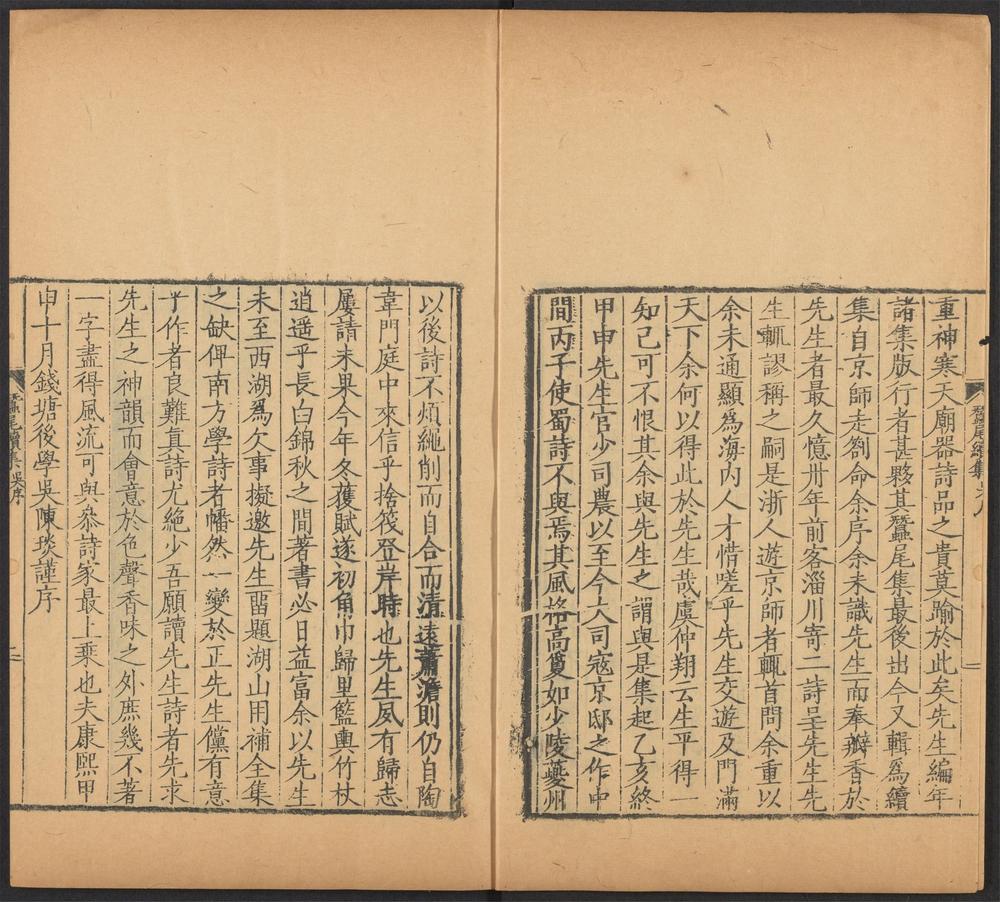 重神寒天廟器詩品之貴莫踰於此矣先生編年
諸集版行者甚夥其蠶尾集最後出今又輯爲續
集自京師走劄命余序余未識先生而奉瓣香於
先生者最久憶卅年前客淄川寄二詩呈先生先
生輒謬稱之嗣是浙人遊京師者輒首問余重以
余未通顯爲海内人才惜嗟乎先生交遊及門滿
天下余何以得此於先生哉虞仲翔云生平得一
知己可不恨其余與先生之謂與是集起乙亥終
甲申先生官少司農以至今大司寇京邸之作中
間丙子使蜀詩不與焉其風格高敻如少陵夔州
以後詩不煩繩削而自合而清遠蕭澹則仍自陶
韋門庭中來信乎捨筏登岸時也先生夙有歸志
屢請未果今年冬獲賦遂初角巾歸里籃輿竹杖
逍遥乎長白錦秋之間著書必日益富余以先生
未至西湖爲欠事擬邀先生畱題湖山用補全集
之缺俾南方學詩者幡然一變於正先生儻有意
乎作者良難真詩尤絕少吾願讀先生詩者先求
先生之神韻而會意於色聲香味之外庶幾不著
一字盡得風流可與叅詩家最上乗也夫康熙甲
申十月錢塘後學吳陳琰謹序
蠶尾續集吳序
二